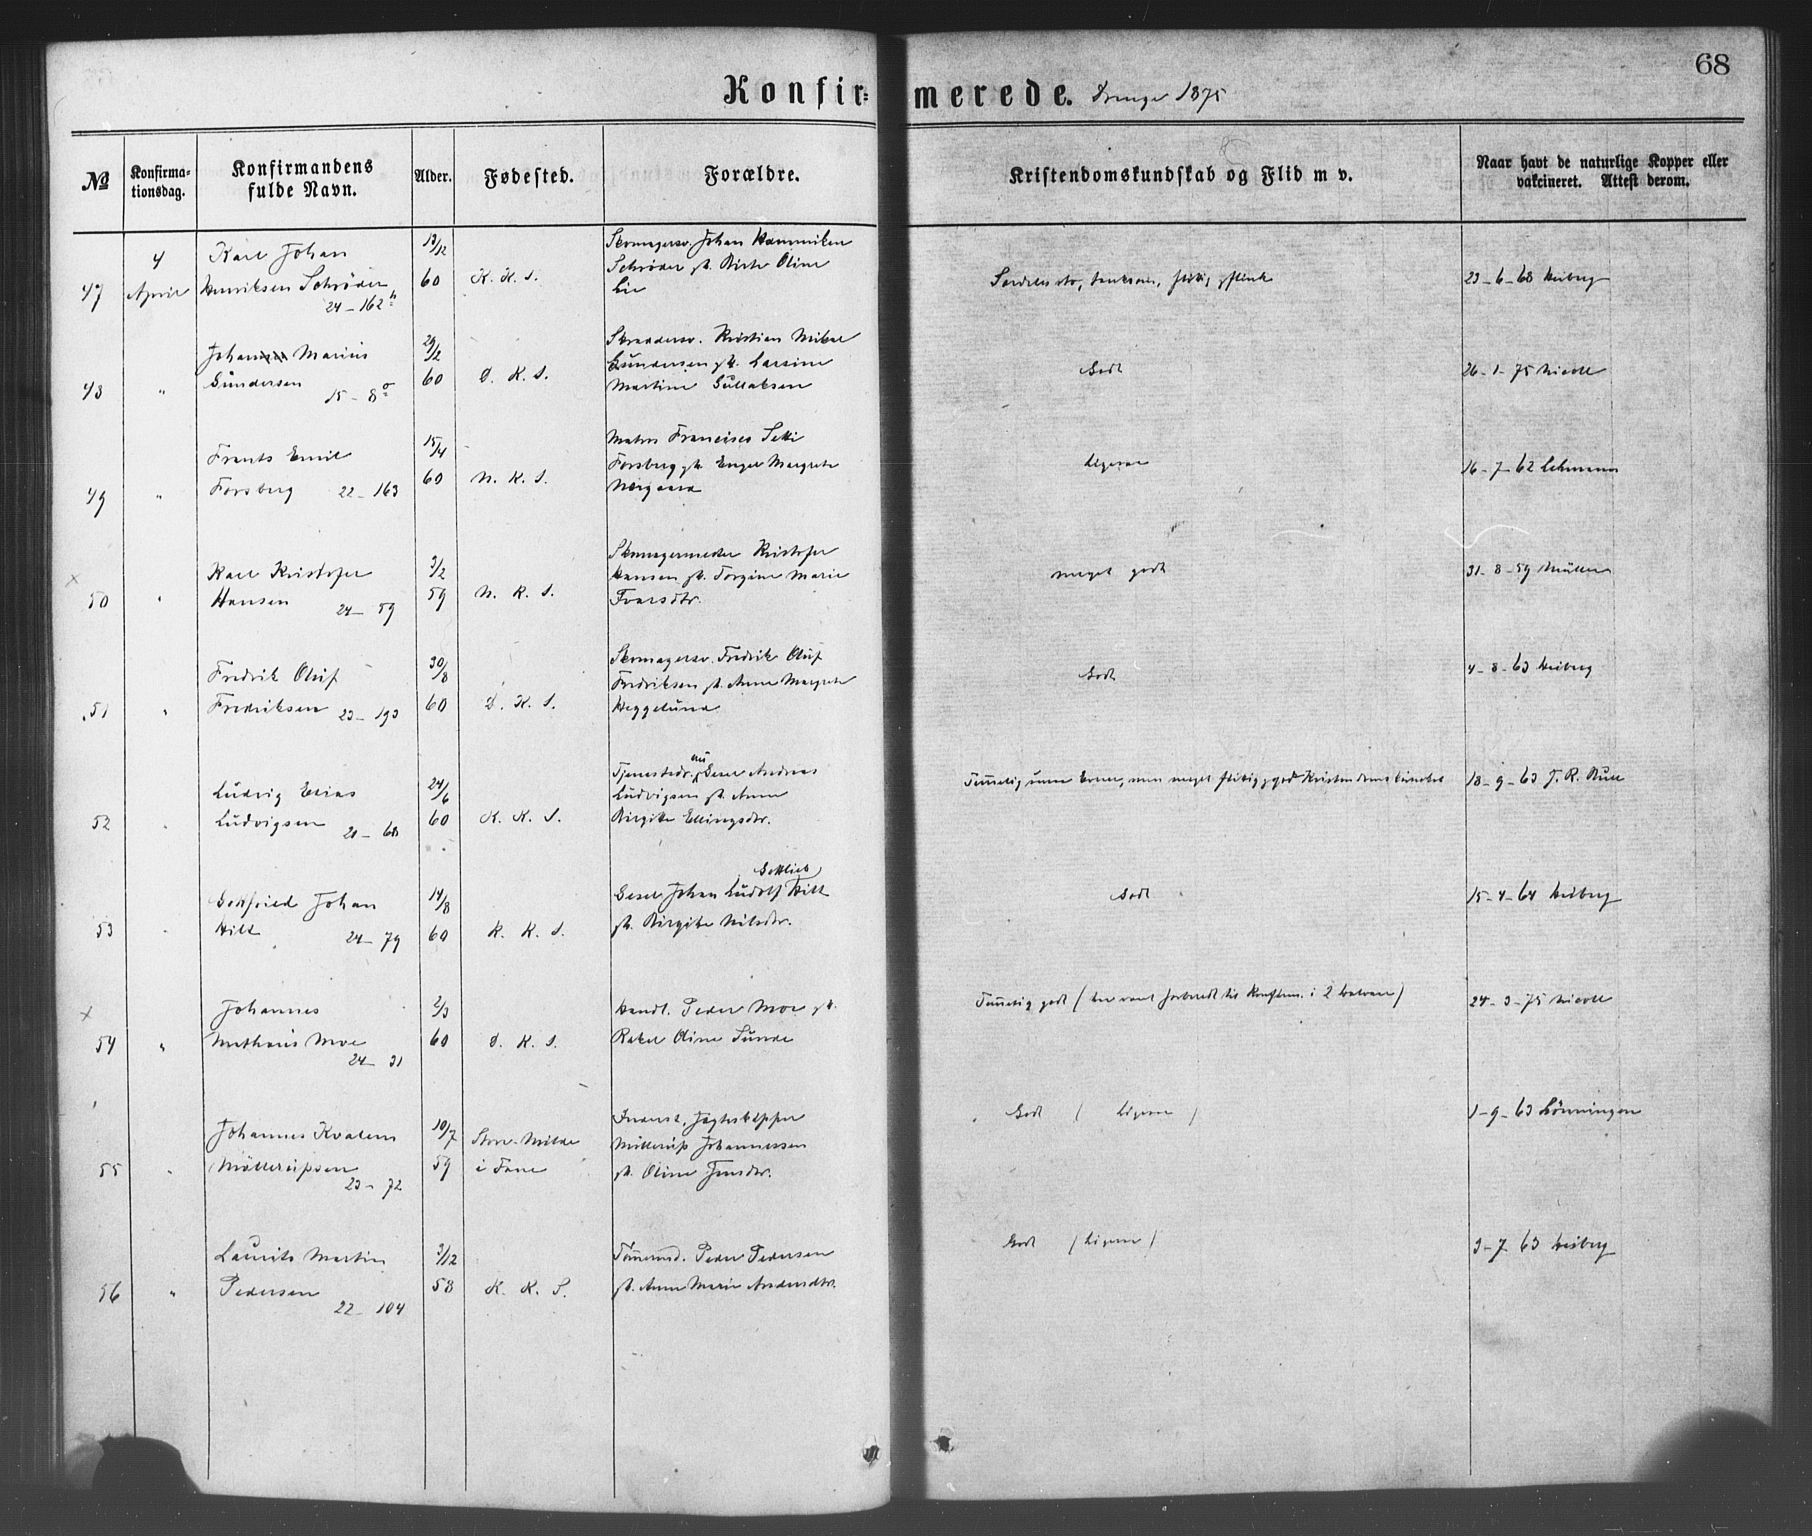 68
Konfirmerede. Drenge 1875
No
Konfirmationsdag.
Konfirmandens fulde Navn.
Alder.
Fødested.
Forældre.
Kristendomskundskab og Flid m v.
Naar havt de naturlige Kopper eller vakcineret. Attest derom.
47
4 April
Karl Johan
Henriksen Schrøder
24 - 162
13/12 60
K. K. S.
Skomagersv. Johan Henriken
Schrøder
Oline
Lie
flink
23-6-68 Heiberg
48
"
Johan Marius
Gundersen
15 - 8
29/2 60
D. K. S.
Skræddersv. Kristian Mikal
Gundersen gt. Larsine
Martine Gullaksen
Godt
26-1-75 Nicoll
49
"
Frants Emil
Forsberg 22-163
15/4 60
N. K. S.
Matros
Forsberg gt. Engel Margrete
Ligesaa
16-7-62 Lehmann
x
50
"
Karl Kristofer
Hansen 24-59
3/2 59
N. K. S.
Skomagermester Kristofer
Hansen gt. Torgine Marie
Ivarsdtr.
meget godt
31-8-59 Müller
51
"
Fredrik Oluf
Fredriksen 23-193
30/8 60
D. K. S.
Skomagersv. Fredrik Oluf
Fredriksen gt. Anne Margrete
Heggelund
Godt
4-8-63 Heiberg
52
"
Ludvig Elias
Ludvigsen 21-68
24/6 60
K. K. S.
nu
Andreas
Ludvigsen gt. Anne
Birgite Ellingsdtr.
men meget flittig
18-9-63
53
"
Gotfried Johan
Hilt 24-79
14/8 60
K. K. S.
Gottlieb
Johan Ludolf Hilt
gt. Birgite Nilsdtr.
Godt
15-4-64 Heiberg
x
54
"
Johannes
Mathæus Moe
24-31
2/3 60
D. K. S.
Handl. Peder Moe gt.
Rakel Oline Sunde
Temmelig godt (har været forberedt til Konfirm. i 2 halvaar)
24-3-75 Nicoll
55
"
Johannes Kvalem
Møllerupsen
23-72
10/7 59
Store-Milde
i Fane
Inderst,
Møllerup Johannessen
gt. Oline Jensdtr.
Godt (Ligesaa)
1-9-63 Lönningen
56
"
Laurits Martin
Pedersen
22-104
3/12 58
K. K. S.
Tømmermd. Peder Pedersen
gt. Anne Marie Andersdtr.
Godt (Ligesaa)
3-7-63 Heiberg